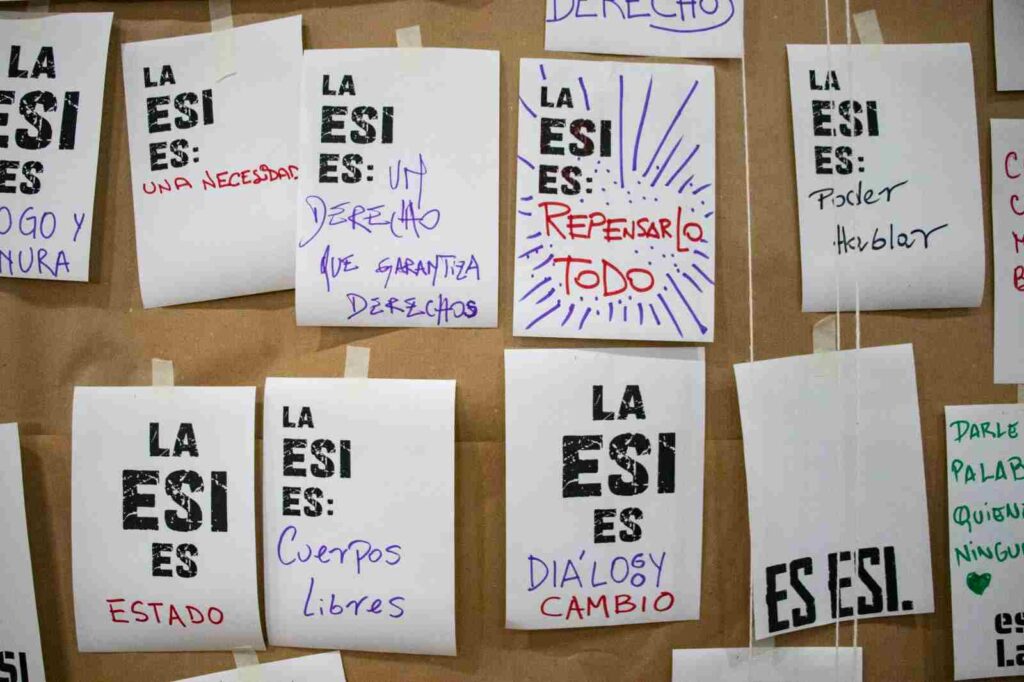 DERECHOS
LA
ESI
ES
OGO Y
NURA
LA
ESI
ES:
UNA NECESIDAD
LA
ESI
ES: UN
DERECHO
QUE GARANTIZA
DERECHOS
LA
ESI
ES:
REPENSARLO
TODO
LA
ESI
ES:
Poder
Hablar
C
C
M
B
LA
ESI
ES
ESTADO
LA
ESI
ES:
Cuerpos
Libres
LA
ESI
ES
DIÁLOGO Y
CAMBIO
ES ESI.
DARLE
PALAB
QUIENE
NINGU
es
La
SI